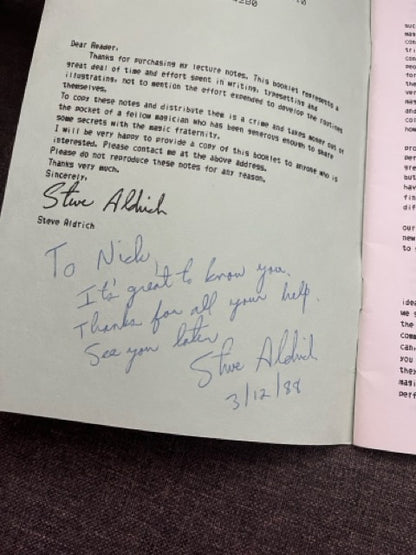 4280
Dear Reader,
Thanks for purchasing my lecture notes. This booklet represents a
great deal of time and effort spent in writing, typesetting and
illustrating, not to mention the effort expended to develop the routines
themselves.
To copy these notes and distribute them is a crime and takes money out of
the pocket of a fellow magician who has been generous enough to share
some secrets with the magic fraternity.
I will be very happy to provide a copy of this booklet to anyone who is
interested. Please contact me at the above address.
Please do not reproduce these notes for any reason.
Thanks very much.
Sincerely,
Steve Aldrich
Steve Aldrich
To Nick,
It's great to know you.
Thanks for all your help.
See you later
Steve Aldrich
3/12/88